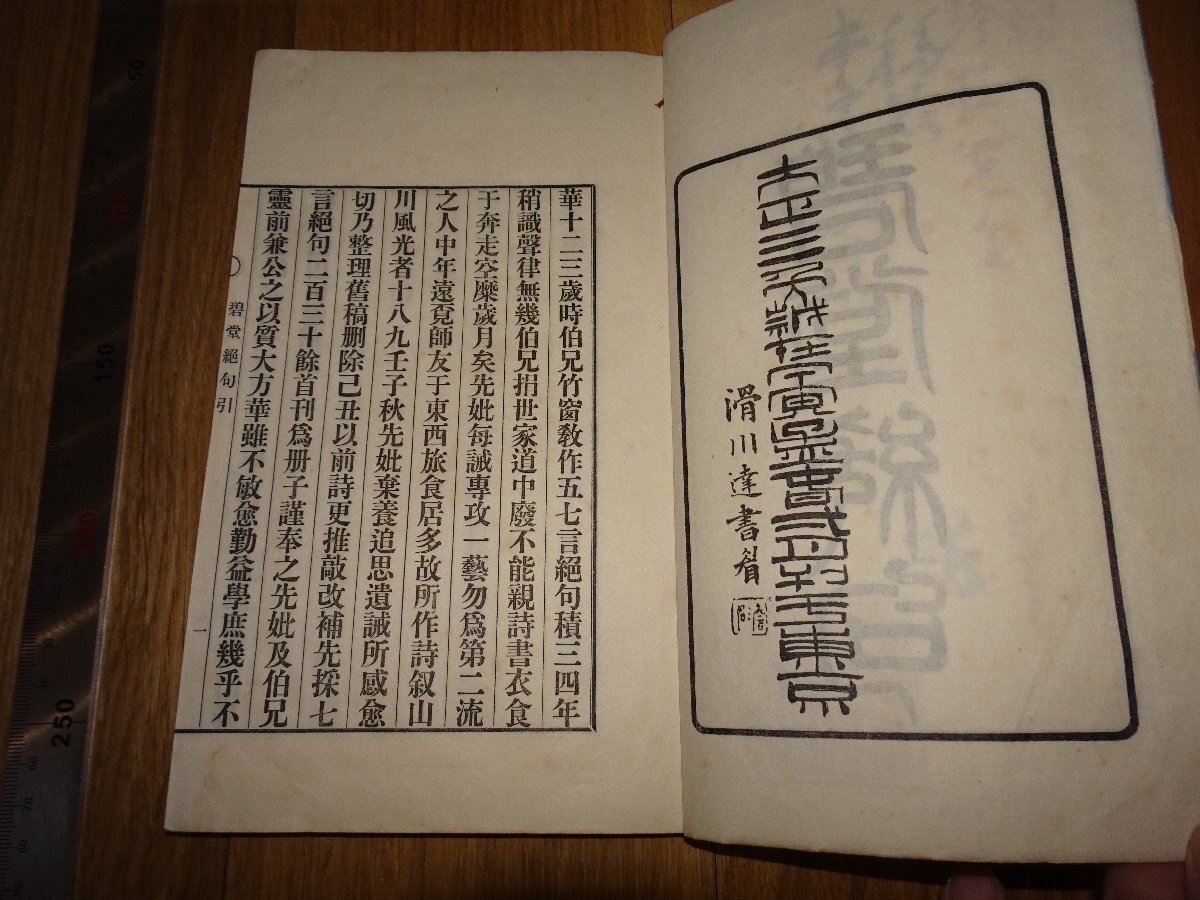 大正三年歳在甲寅
東京
滑川達書眉
華十二三歲時伯兄竹窗敎作五七言絕句積三四年
稍識聲律無幾伯兄捐世家道中廢不能親詩書衣食
于奔走空糜歲月矣先妣每誡專攻一藝勿爲第二流
之人中年遠覓師友于東西旅食居多故所作詩叙山
川風光者十八九壬子秋先妣棄養追思遺誡所感愈
切乃整理舊稿删除己丑以前詩更推敲改補先採七
言絕句二百三十餘首刊爲册子謹奉之先妣及伯兄
靈前兼公之以質大方華雖不敏愈勤益學庶幾乎不
碧堂絕句引
一
50
100
150
200
250